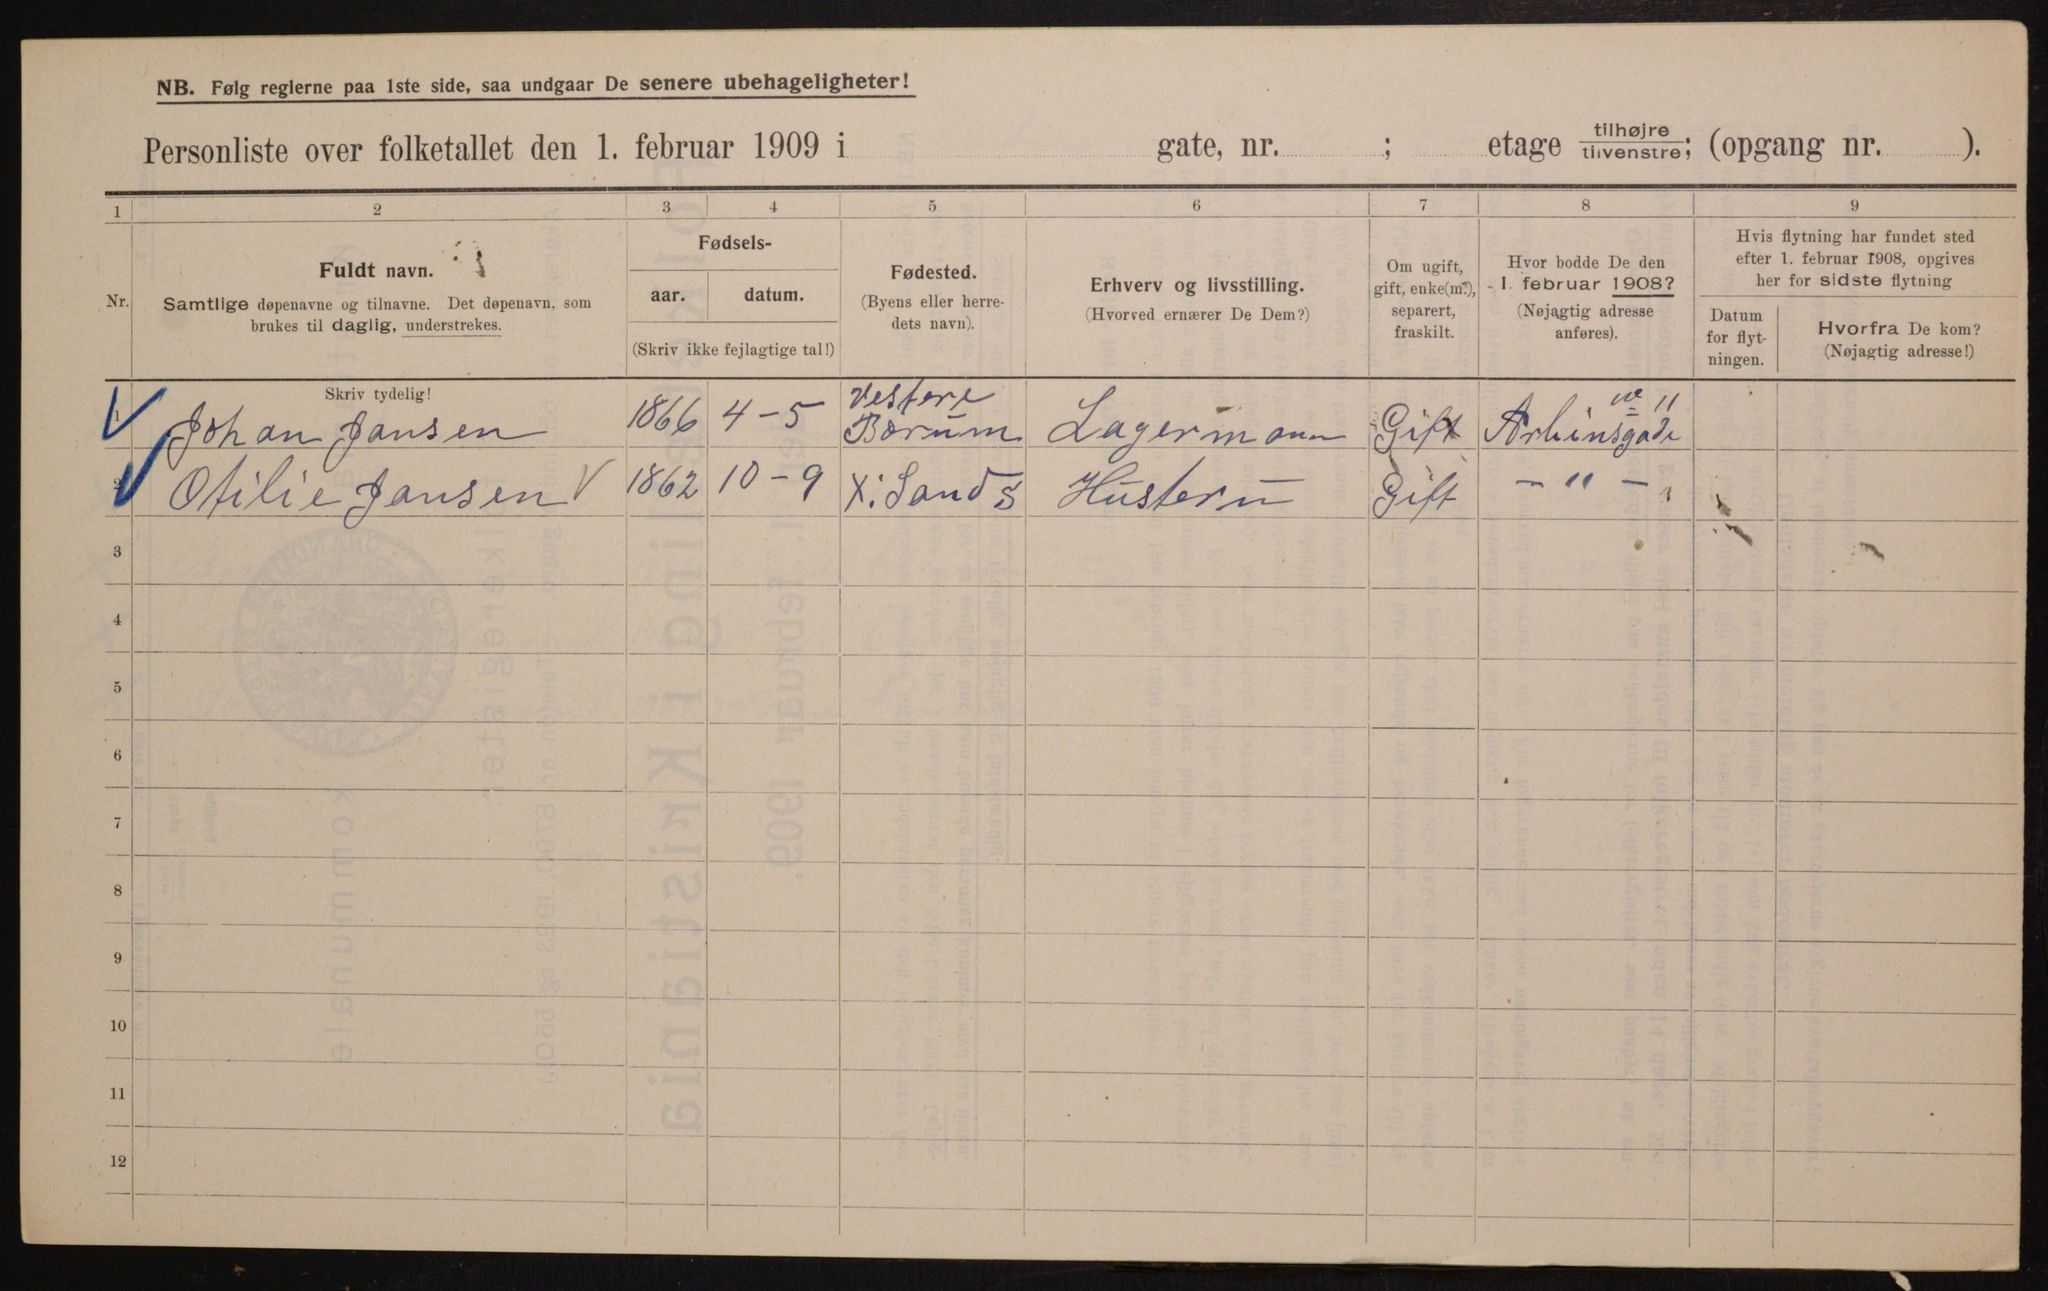 NB. Følg reglerne paa 1ste side, saa undgaar De senere ubehageligheter!
Personliste over folketallet den 1. februar 1909 i gate, nr. ; etage tilhøjre/tilvenstre; (opgang nr. ).
1 2 3 4 5 6 7 8 9
Nr.
Fuldt navn.
Samtlige døpenavne og tilnavne. Det døpenavn, som
brukes til daglig, understrekes.
Fødsels-
aar. datum.
(Skriv ikke fejlagtige tal!)
Fødested.
(Byens eller herre-
dets navn).
Erhverv og livsstilling.
(Hvorved ernærer De Dem?)
Om ugift,
gift, enke(m.),
separert,
fraskilt.
Hvor bodde De den
1. februar 1908?
(Nøjagtig adresse
anføres).
Hvis flytning har fundet sted
efter 1. februar 1908, opgives
her for sidste flytning
Datum
for flyt-
ningen.
Hvorfra De kom?
(Nøjagtig adresse!)
Skriv tydelig!
1 Johan Jansen 1866 4-5 Vestere Bærum Lagermann Gift Arbinsgade 11
2 Otilie Jansen 1862 10-9 Sands Hüsterü Gift - " -
3
4
5
6
7
8
9
10
11
12